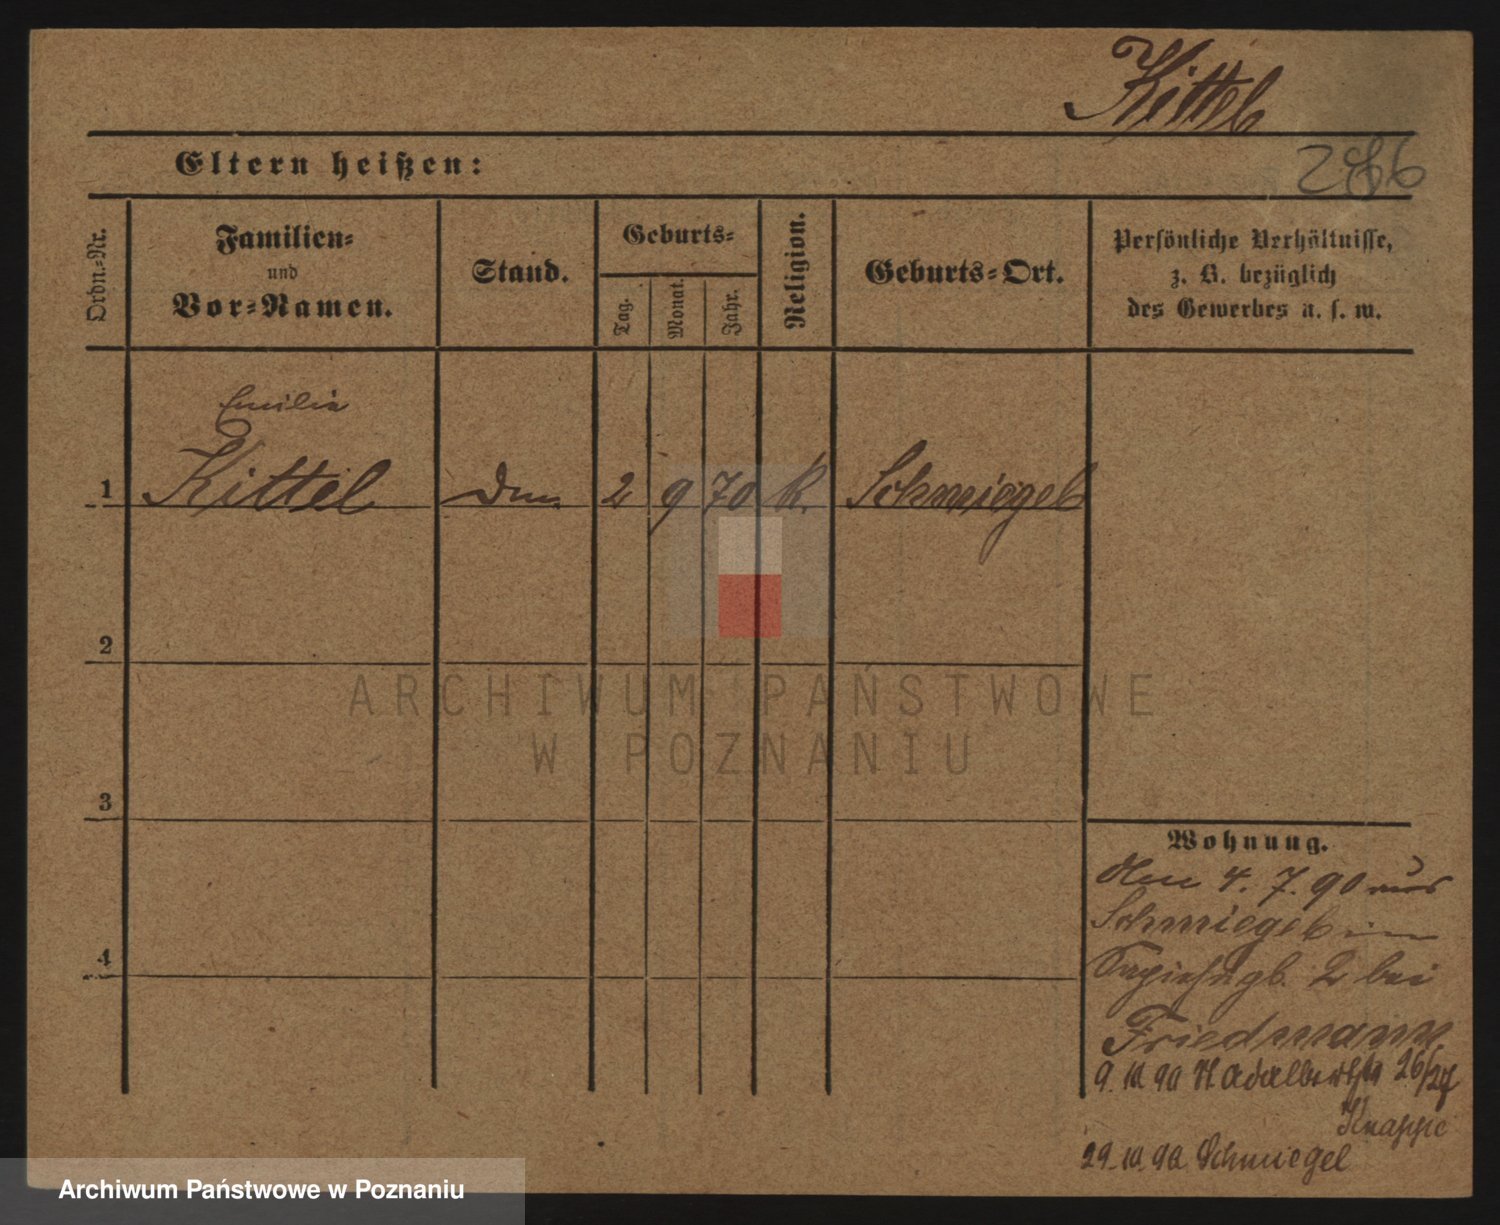 Kittel
286
Eltern heißen:
Ordn.-Nr.
Familien-
und
Vor-Namen.
Stand.
Geburts-
Tag.
Monat.
Jahr.
Religion.
Geburts-Ort.
Persönliche Verhältnisse,
z. B. bezüglich
des Gewerbes u. s. w.
Emilie
1 Kittel 2 9 70 K. Schmiegel
2
3
4
Wohnung.
den 4. 7. 90 aus
Schmiegel in
2 bei
Friedmann
9.10.90 St Adalbertstr 26/27
Knappe
29.10.90 Schmiegel
ARCHIWUM PAŃSTWOWE
W POZNANIU
Archiwum Państwowe w Poznaniu